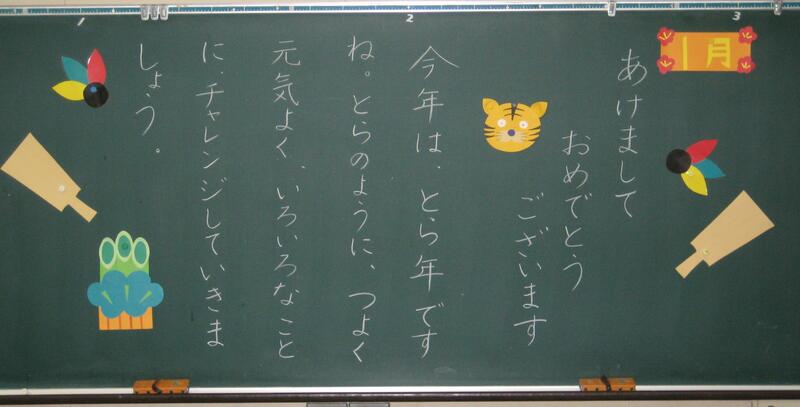 1月
あけまして
おめでとう
ございます
今年は、とら年です
ね。とらのように、つよく
元気よく、いろいろなこと
に、チャレンジしていきま
しょう。
1
2
3